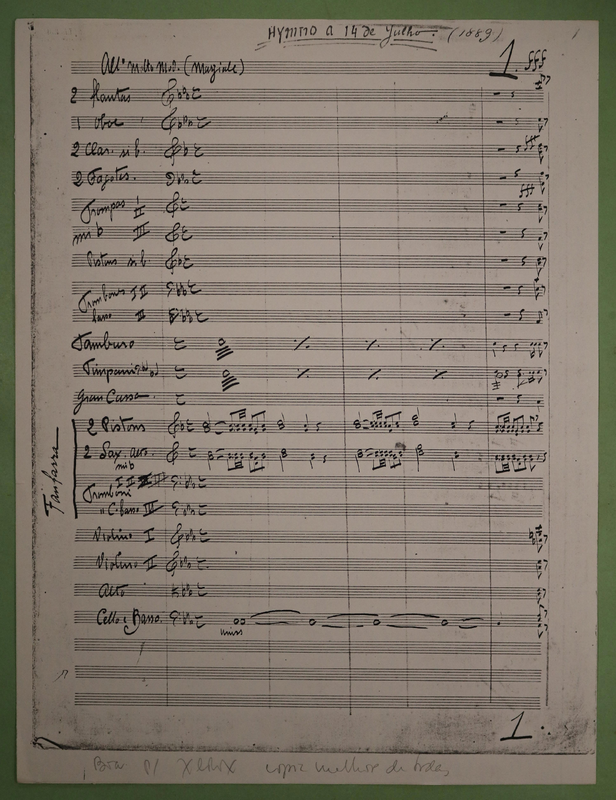 HYMNO A 14 de Julho. (1889)
1. fff
All° molto mod. (Marziale)
2 flautas
1 Oboe
2 Clar. si b.
2 Fagotes.
fff
fff
Trompas I
II
mi b III
Pistons si b.
Trombones I II
basso III
Tamburo
Timpani
Gran Cassa
Fanfarra
2 Pistons
2 Sax. altos.
mi b
Tromboni I II III
" C. basso IV
Violino I
Violino II
Alto
Cello e Basso.
unis
1.
Boa p/ XEROX copia melhor de todas